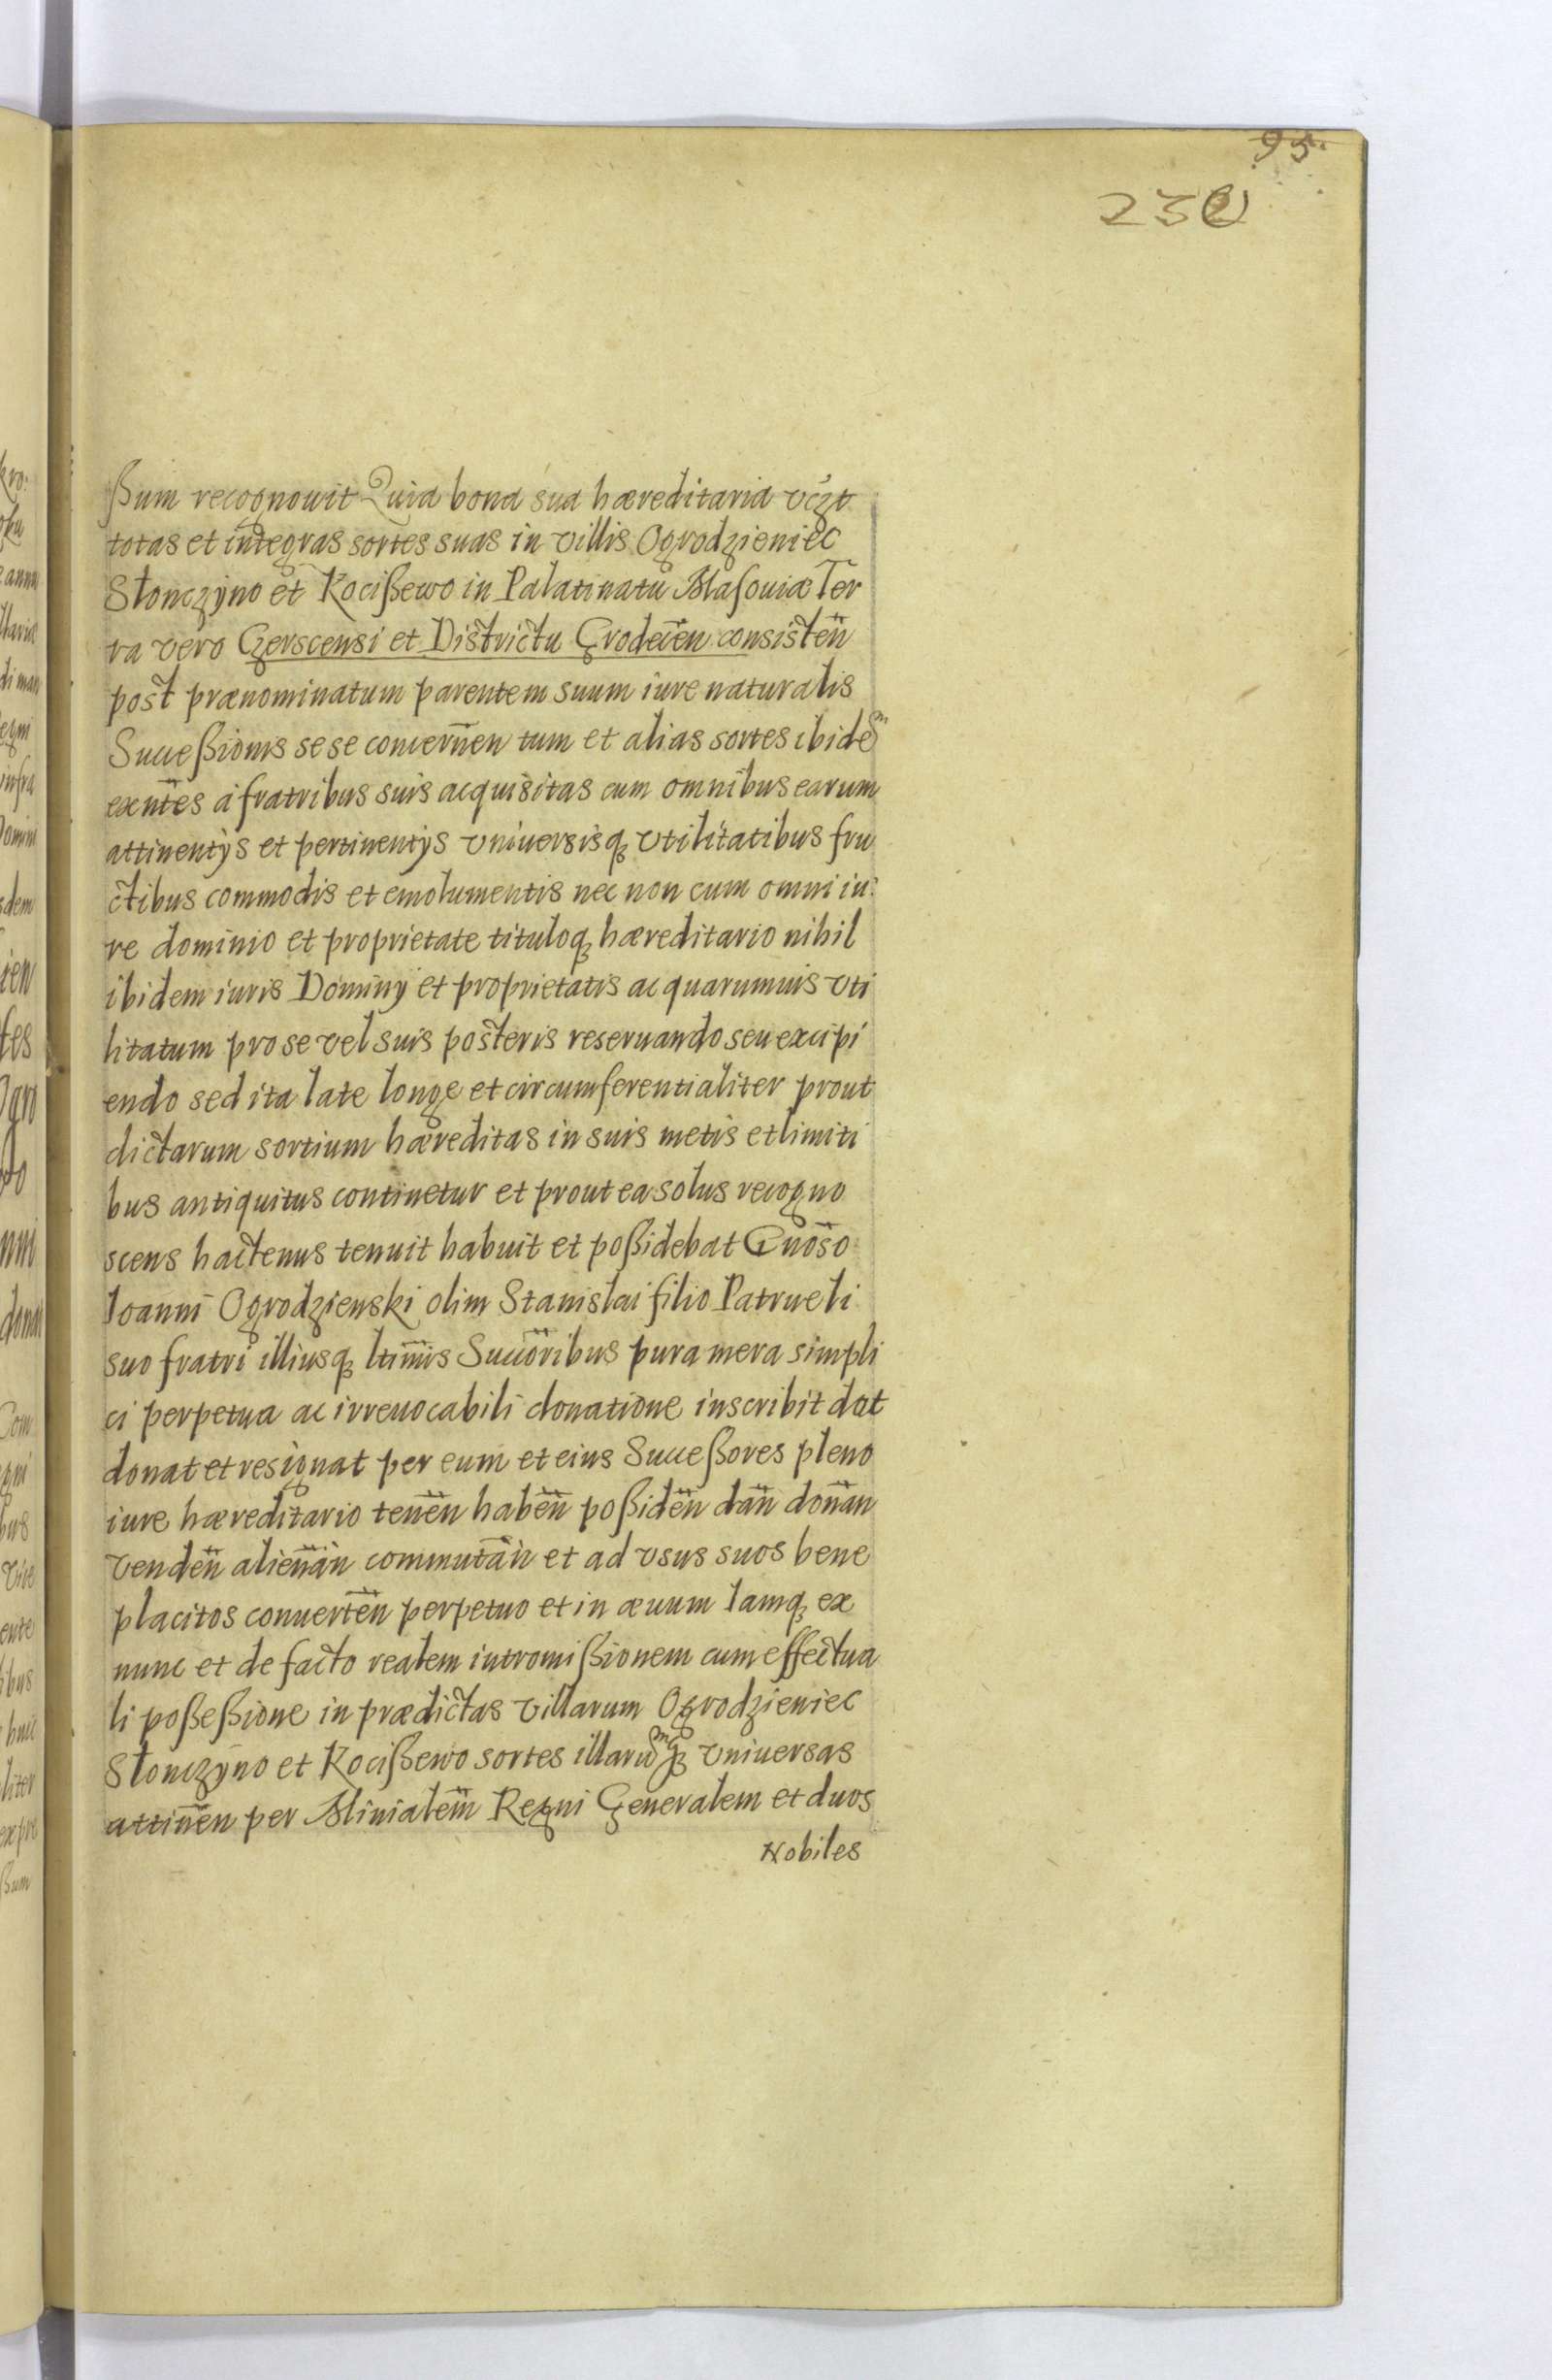 95.
232
ßum recognouit Quia bona sua hæreditaria vczt
totas et integras sortes suas in villis Ogrodzieniec
Słonczyno et Kocißewo in Palatinatu Masouiæ Ter
ra vero Czerscensi et Districtu Grodecen̄ consisten̄
post prænominatum parentem suum iure naturalis
Succeßionis sese concernen̄ tum et alias sortes ibidem
exn̄tes á fratribus suis acquisitas cum omnibus earum
attinentijs et pertinentijs vniuersisq; vtilitatibus fru
ctibus commodis et emolumentis nec non cum omni iu:
re dominio et proprietate tituloq; hæreditario nihil
ibidem iuris Dominij et proprietatis ac quarumuis vti
litatum pro se vel suis posteris reseruando seu excipi
endo sed ita late longe et circumferentialiter prout
dictarum sortium hæreditas in suis metis et limiti
bus antiquitus continetur et prout ea solus recogno
scens hactenus tenuit habuit et poßidebat Gnos̄o
Ioanni Ogrodzienski olim Stanislai filio Patrueli
suo fratri illiusq; ltim̄is Succōribus pura mera simpli
ci perpetua ac irreuocabili donatione inscribit dat
donat et resignat per eum et eius Succeßores pleno
iure hæreditario tenen̄ haben̄ poßiden̄ dan̄ donan̄
venden̄ alienan̄ commutan̄ et ad vsus suos bene
placitos conuerten̄ perpetuo et in æuum Iamq; ex
nunc et de facto realem intromißionem cum effectua
li poßeßione in prædictas villarum Ogrodzieniec
Słonczyno et Kocißewo sortes illarumq; vniuersas
attinen̄ per Minialem̄ Regni Generalem et duos
Nobiles